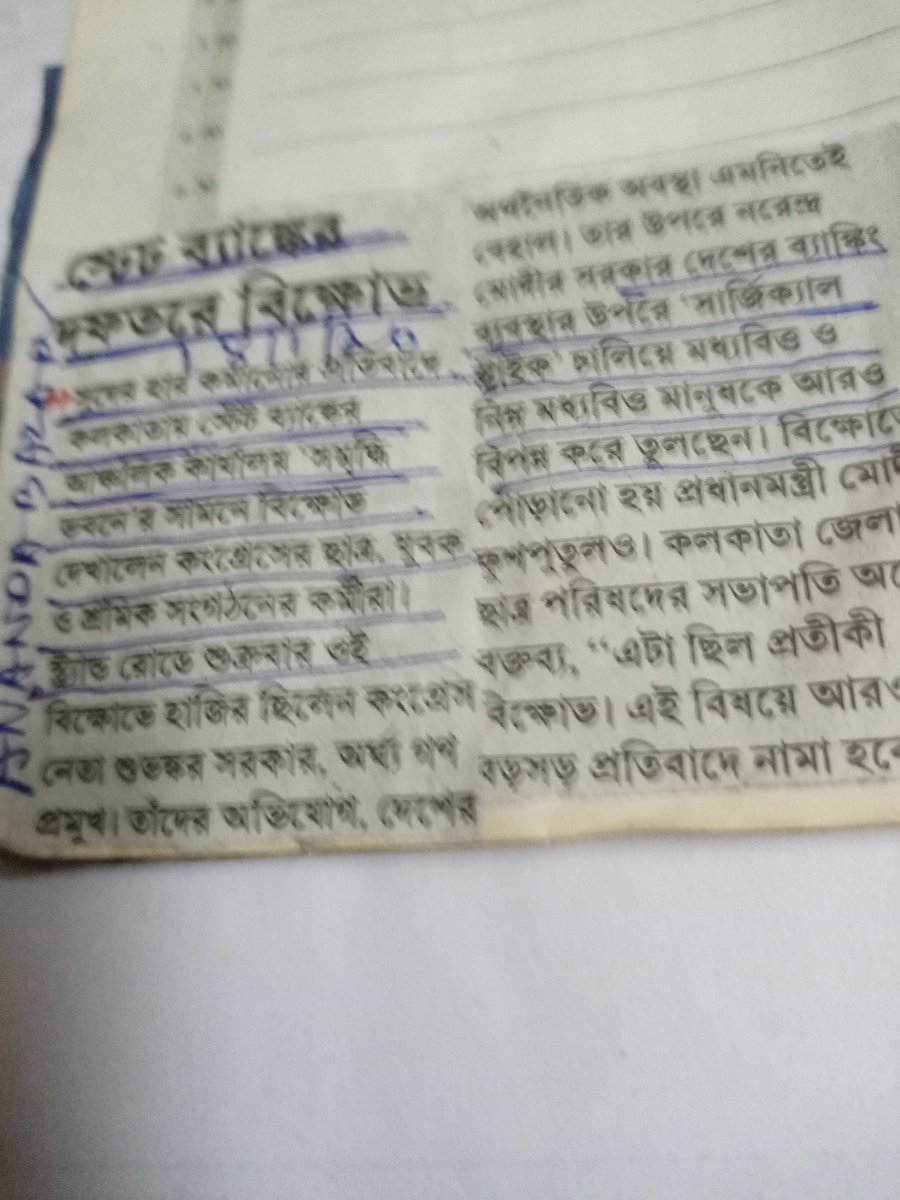 স্টেট ব্যাঙ্কের
দফতরে বিক্ষোভ
সুদের হার কমানোর প্রতিবাদে
কলকাতায় স্টেট ব্যাঙ্কের
আঞ্চলিক কার্যালয় ‘সমৃদ্ধি
ভবনে’র সামনে বিক্ষোভ
দেখালেন কংগ্রেসের ছাত্র, যুবক
ও শ্রমিক সংগঠনের কর্মীরা।
স্ট্র্যান্ড রোডে শুক্রবার ওই
বিক্ষোভে হাজির ছিলেন কংগ্রেস
নেতা শুভঙ্কর সরকার, অর্ঘ্য গণ
প্রমুখ। তাঁদের অভিযোগ, দেশের
অর্থনৈতিক অবস্থা এমনিতেই
বেহাল। তার উপরে নরেন্দ্র
মোদীর সরকার দেশের ব্যাঙ্কিং
ব্যবস্থার উপরে ‘সার্জিক্যাল
স্ট্রাইক’ চালিয়ে মধ্যবিত্ত ও
নিম্ন মধ্যবিত্ত মানুষকে আরও
বিপন্ন করে তুলছেন। বিক্ষোভে
পোড়ানো হয় প্রধানমন্ত্রী
কুশপুতুলও। কলকাতা জেলা
ছাত্র পরিষদের সভাপতি
বক্তব্য, “এটা ছিল প্রতীকী
বিক্ষোভ। এই বিষয়ে আরও
বড়সড় প্রতিবাদে নামা হবে